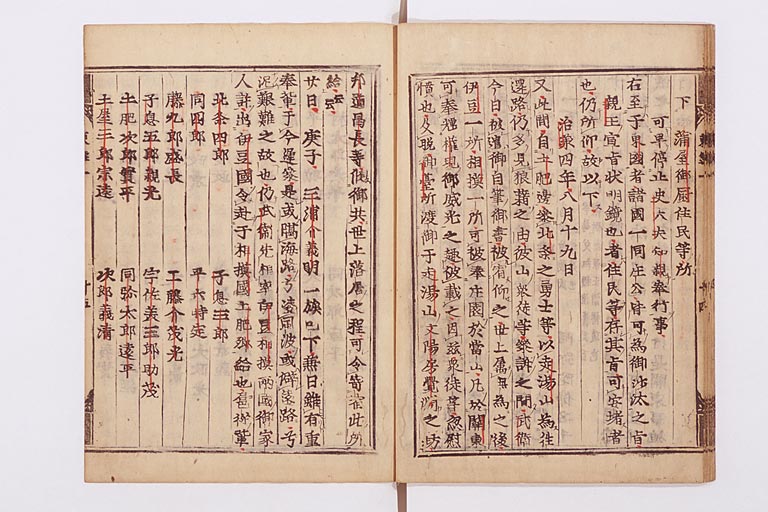 下 蒲屋御厨住民等所
可早停止史大夫知親奉行事
右至于東國者諸國一同庄公皆可為御沙汰之旨
親王宣旨状明鏡也者住民等存其旨可安堵者
也仍所仰故以下
治承四年八月十九日
又此間自土肥邊參北条之勇士等以走湯山為往
還路仍多見狼藉之由彼山衆徒等參訴之間武衛
今日被遣御自筆御書被宥仰之世上属無為之後
伊豆一所相摸一所可被奉庄園於當山凡於關東
可奉耀權現御威光之趣被載之因茲衆徒等忽慰
憤也及晩御臺所渡御于走湯山文陽房覺淵之坊
邦道昌長等候御共世上落居之程可令寄宿此所
給云云
廿日 庚子 三浦介義明一族已下兼日雖有進
奉輩于今遲參是或隔海路兮凌風波或僻遠路兮
泥艱難之故也仍武衛先相率伊豆相摸兩國御家
人許出伊豆國令赴于相摸國土肥郷給也扈從輩
北条四郎 子息三郎
同四郎 平六時定
藤九郎盛長 工藤介茂光
子息五郎親光 宇佐美三郎助茂
土肥次郎實平 同弥太郎遠平
土屋三郎宗遠 次郎義清